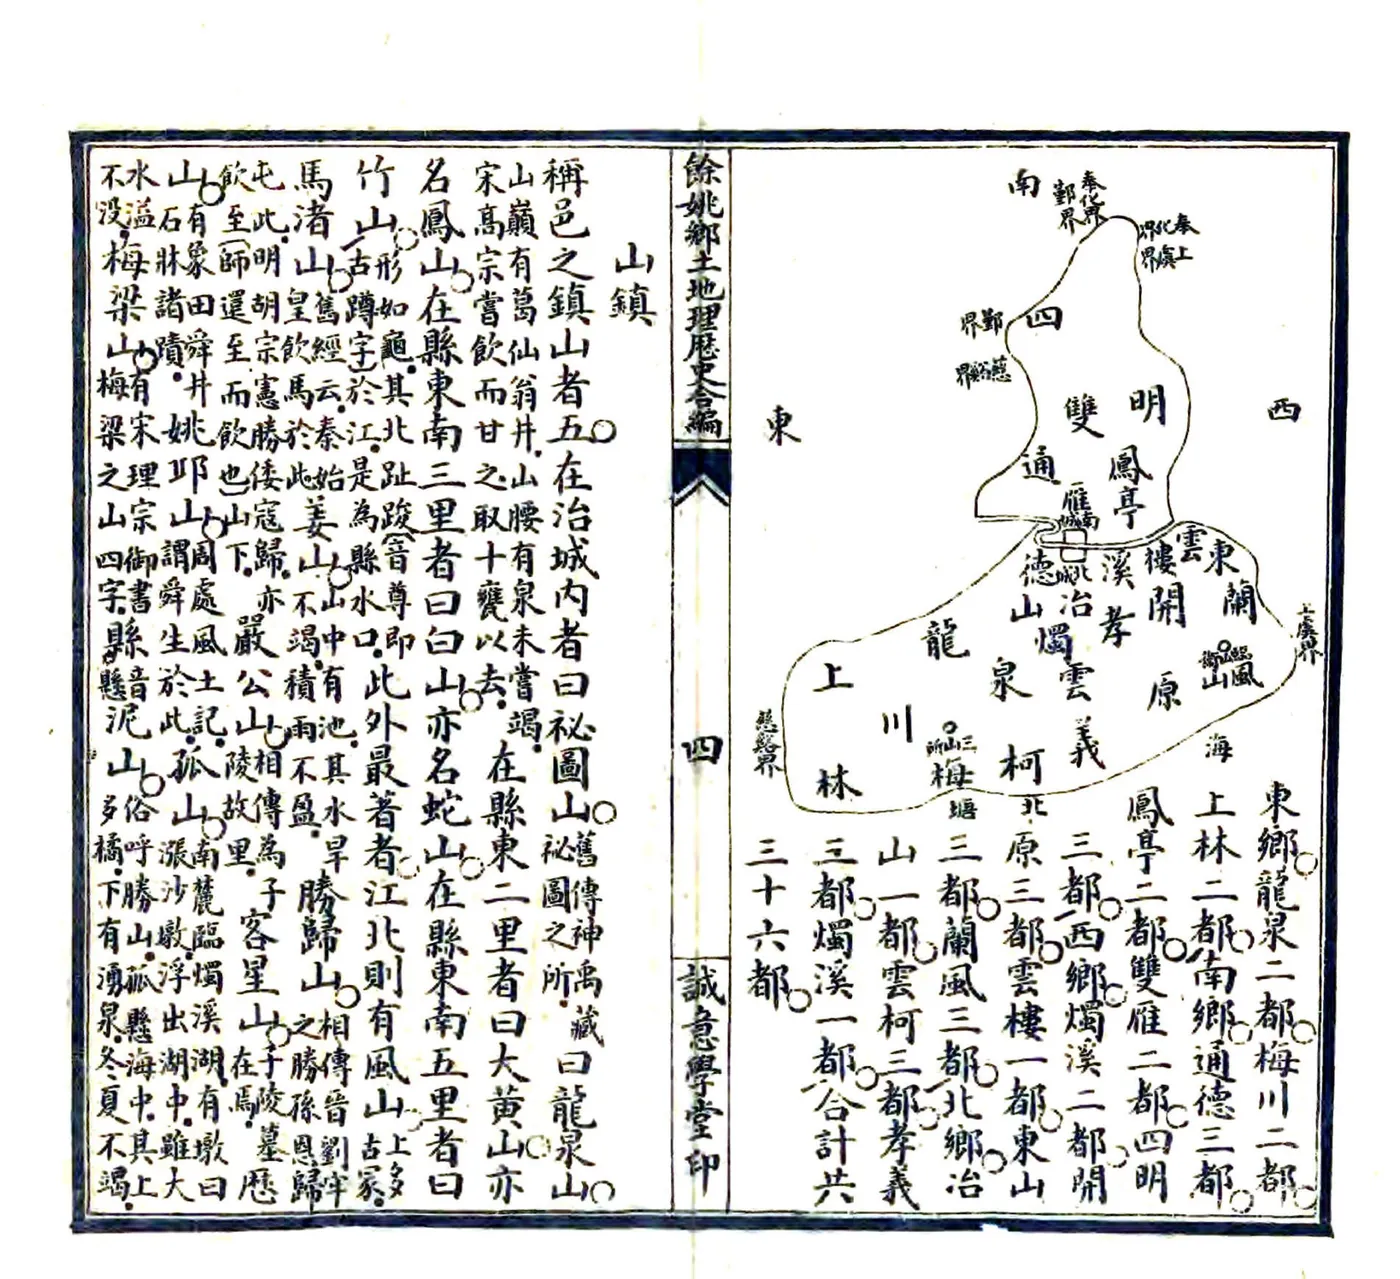 南
奉化界
鄞界
奉化界
上虞界
四
明
鄞界
慈谿界
東
西
雙
雁
通
德
鳳亭
南城
北城
雲樓
東山
蘭風
開原
燭溪
孝義
冶山
燭
雲柯
龍泉
上林
梅川
臨山衛
三山所
上虞界
慈谿界
海
北
塘
東鄉龍泉二都梅川二都
上林二都南鄉通德三都
鳳亭二都雙雁二都四明
三都西鄉燭溪二都開
原三都雲樓一都東山
三都蘭風三都北鄉冶
山一都雲柯三都孝義
三都燭溪一都合計共
三十六都
餘姚鄉土地理歷史合編
四
誠意學堂印
山鎮
稱邑之鎮山者五在治城內者曰祕圖山舊傳神禹藏祕圖之所曰龍泉山
山巔有葛仙翁井山腰有泉未嘗竭宋高宗嘗飲而甘之取十甕以去在縣東二里者曰大黃山亦
名鳳山在縣東南三里者曰白山亦名蛇山在縣東南五里者曰
竹山形如龜其北趾踆(音尊即古蹲字)於江是為縣水口此外最著者江北則有風山上多古冢
馬渚山舊經云秦始皇飲馬於此姜山山中有池其水旱不竭積雨不盈勝歸山相傳晉劉牢之勝孫恩歸
屯此明胡宗憲勝倭寇歸亦飲至(師還至而飲也)山下嚴公山相傳為子陵故里客星山子陵墓在焉歷
山有象田舜井石牀諸蹟姚邱山周處風土記謂舜生於此孤山南麓臨燭溪湖有墩曰漲沙墩浮出湖中雖大
水溢不没梅梁山有宋理宗御書梅梁之山四字縣音懸泥山俗呼勝山孤懸海中其上多橘下有湧泉冬夏不竭